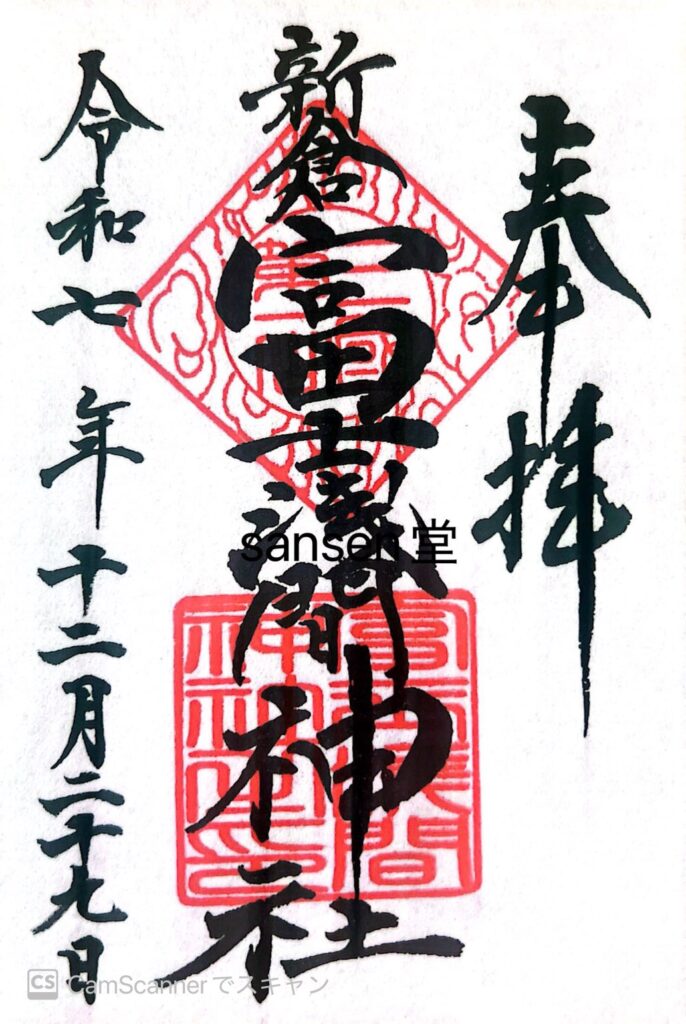 奉拝
新倉
富士浅間
神社
令和七年十二月二十九日
sansen堂
CS CamScannerでスキャン